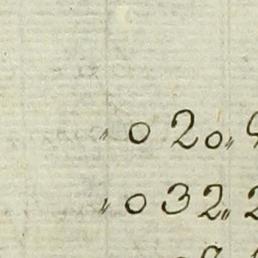 〃 0 20〃
〃 0 32〃 2